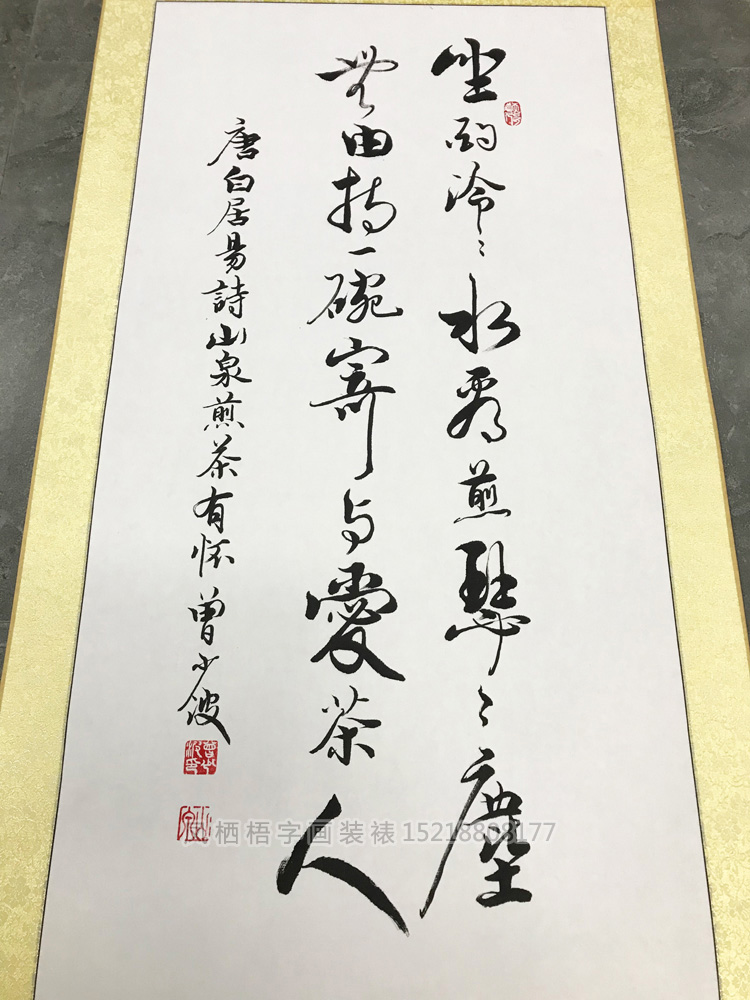 坐酌泠〻水看煎瑟〻塵
無由持一碗寄与愛茶人
唐白居易詩山泉煎茶有怀曾小
栖梧字画装裱15218808177